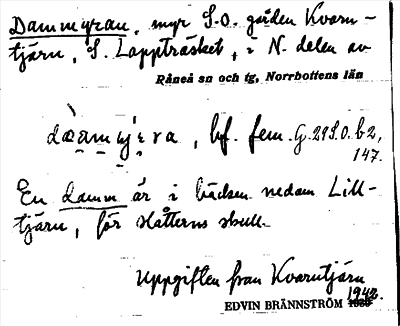 Dammyran, myr S.O. gården Kvarn-
tjärn, S. Lappträsket, i N. delen av
Råneå sn och tg, Norrbottens län
bf. fem. G. 29 S.O. b 2,
147.
En damm är i bäcken nedom Lill-
tjärn, för slåtterns skull.
Uppgiften från Kvarntjärn
1942.
EDVIN BRÄNNSTRÖM